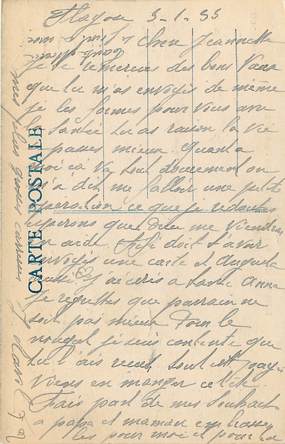 3-1-33
Chère Jeannette
Je te remercie des bons vœux
que tu m'as envoyés de même
je les formes pour vous avec
la santé tu as raison la vie
passes mieux quand a
moi ca va tout doucement on
m'a dit me falloir une petite
opération ce que je redoute
espérons que Dieu me viendra
en aide Fifi doit t'avoir
envoyés une carte et Augusta
aussi j'ai écris a tante Anna
je regrettes que parrain ne
soit pas mieux Pour le
nougat je suis contente que
tu l'ais recut tout est payé
Viens en manger cet été
Fais part de mes souhaits
a papa et maman embrasse
les pour moi et pour toi
mes plus gros
CARTE POSTALE